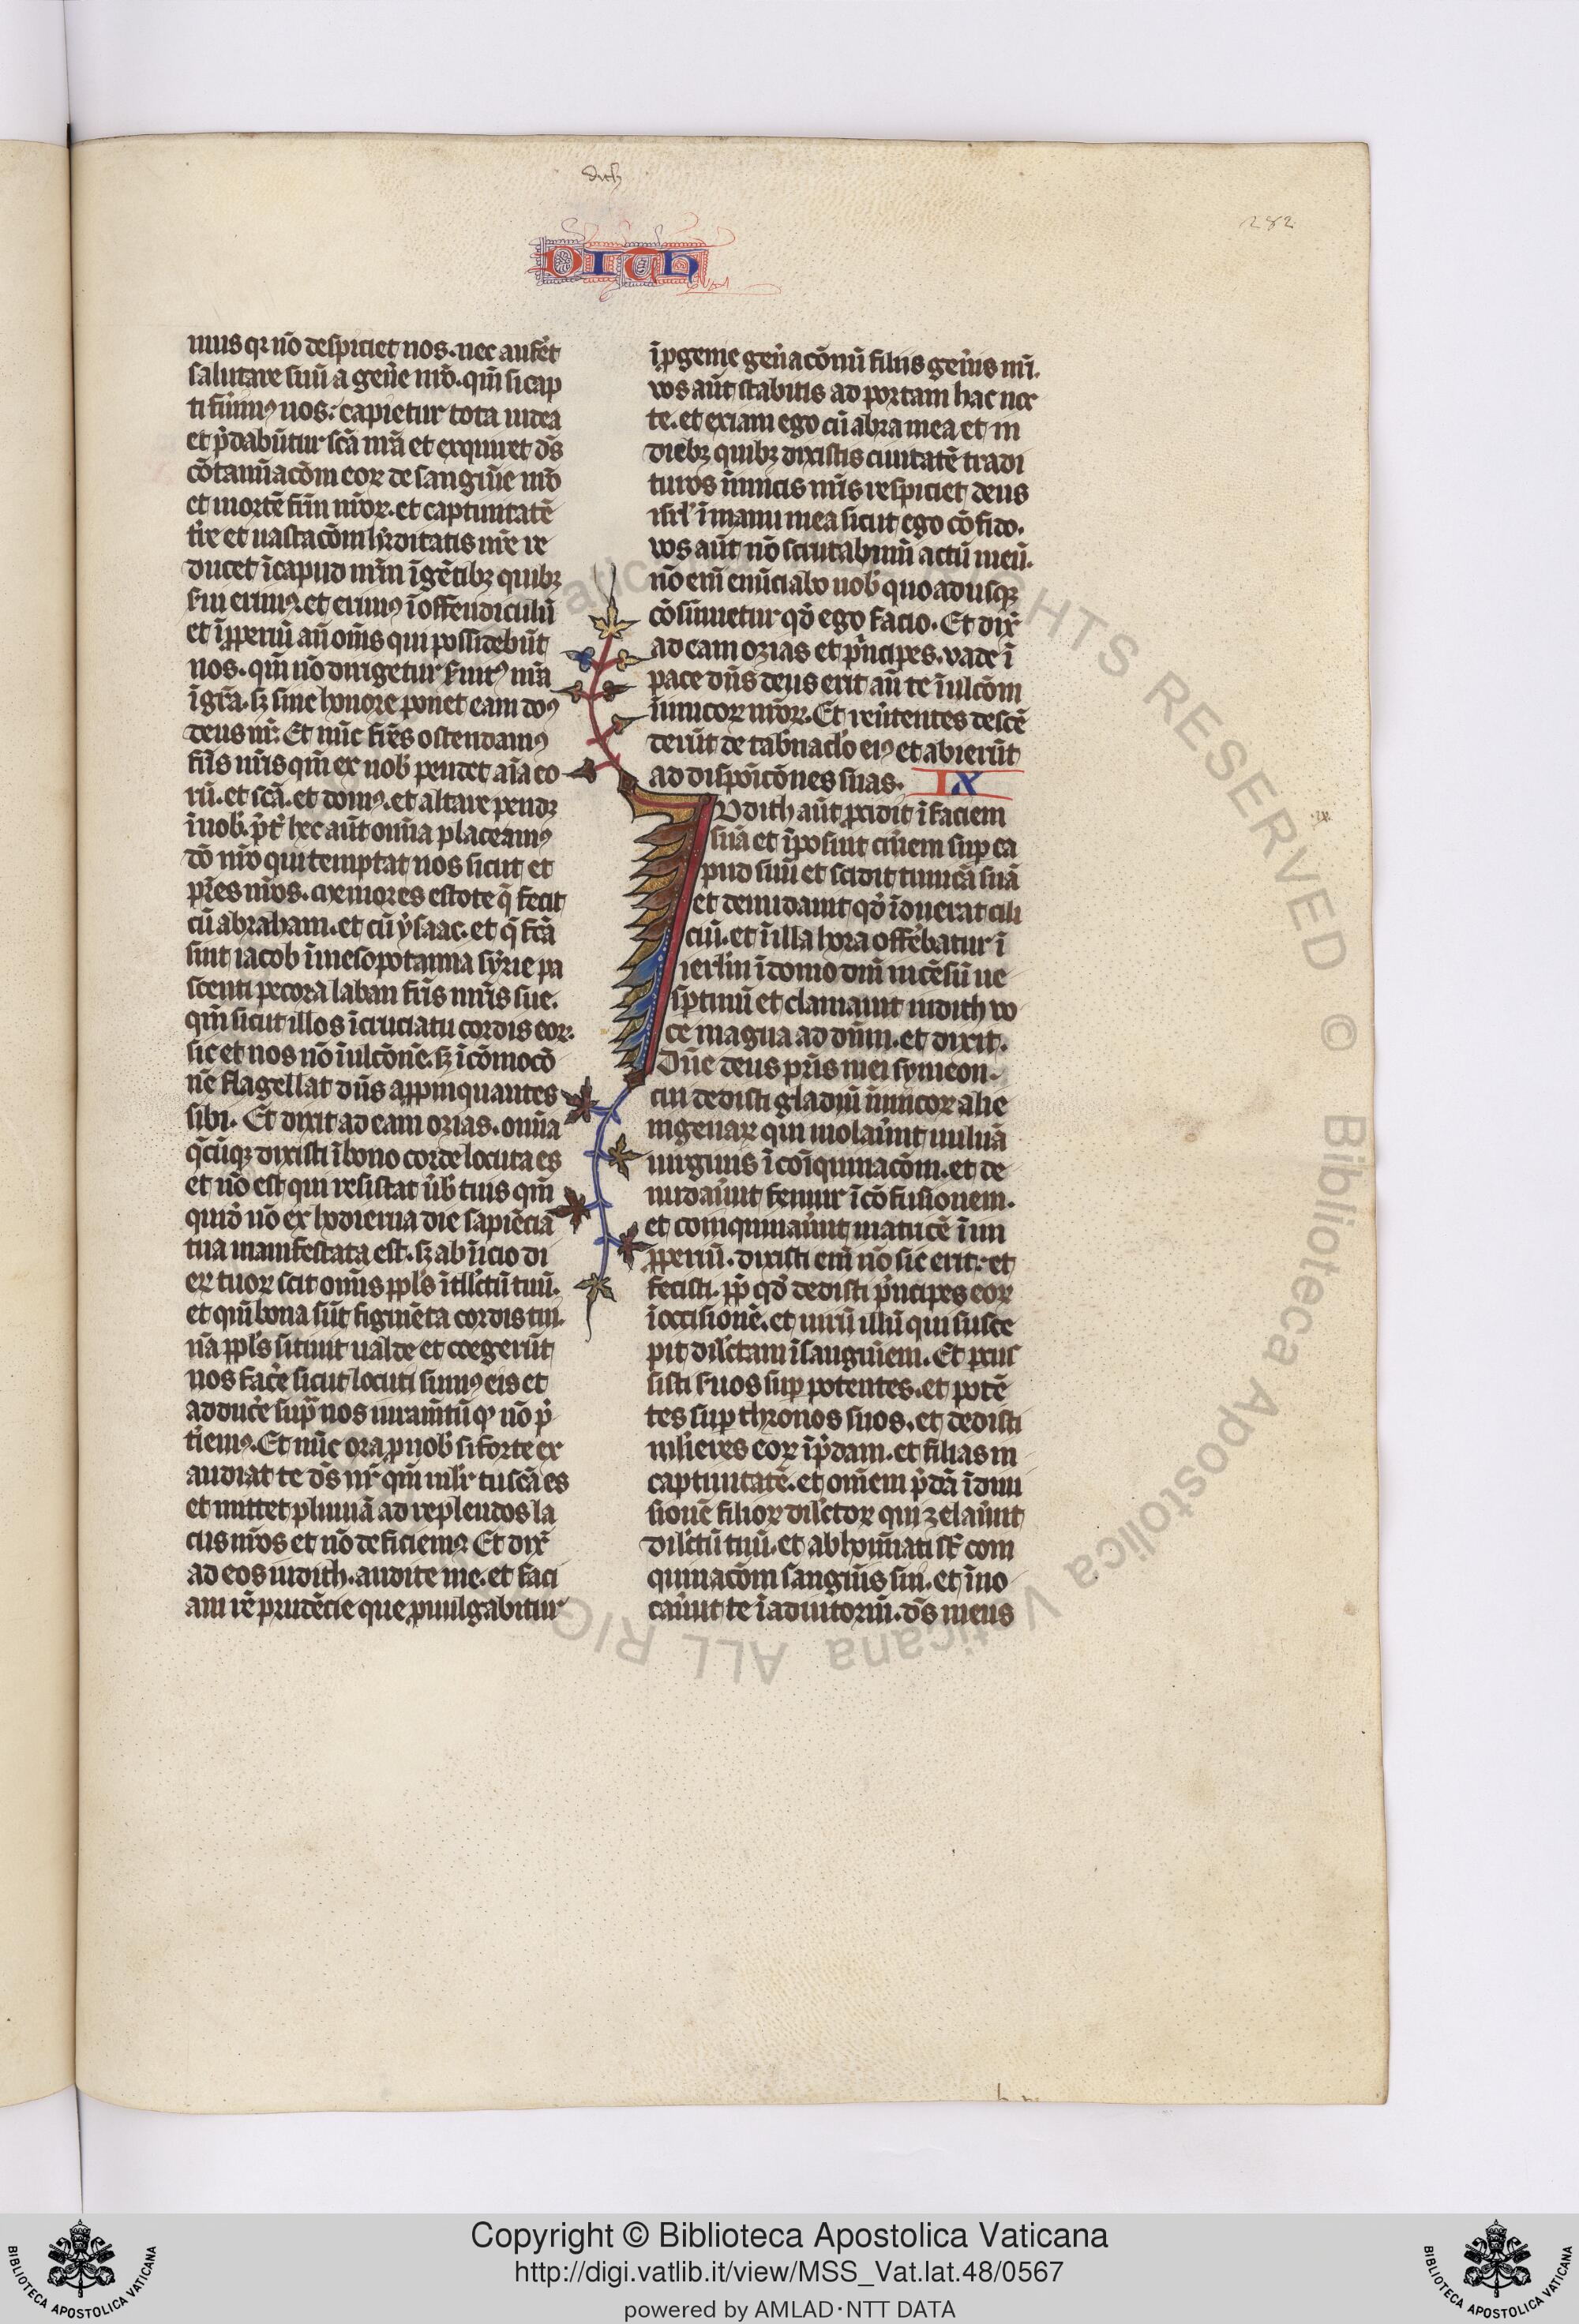 dith
282
DITH
mus qr nō despiciet nos. nec aufet
salutare suū a gen̄e nr̄o. qm̄ si cap
ti fuim9 nos: capietur tota iudea
et p̄dabūtur sc̄a nr̄a et exquiret dn̄s
cōtaminacōm eoꝝ de sanguīe nr̄o
et mortē fr̄m nr̄oꝝ. et captiuitatē
tr̄e et uastacōm hr̄ditatis nr̄e re
ducet ī capud nr̄m ī gētibꝫ quibꝫ
fui erim9. et erim9 ī offendiculū
et īꝓperiū an̄ om̄is qui possidebūt
nos. qm̄ nō dirigetur fuit9 nr̄a
ī gr̄a. sꝫ sine honore ponet eam do9
deus nr̄. Et nūc fr̄es ostendam9
fr̄is nr̄is qm̄ ex nob̄ pendet aīa eo
rū. et sc̄a. et dom9. et altare pendꝫ
ī nob̄. p̄t̄ hec aūt om̄ia placeam9
dō nr̄o qui temptat nos sicut et
pr̄es nr̄os. memores estote q̄ fecit
cū abraham. et cū ysaac. et q̄ fc̄a
sint iacob ī mesopotamia syrie pa
scenti pecora laban fr̄is mr̄is sue.
qm̄ sicut illos ī cruciatu cordis eoꝝ.
sic et nos nō ī ulcōnē. sꝫ ī cōmocō
nē flagellat dn̄s apꝓinquantes
sibi. Et dixit ad eam ozias. om̄ia
q̄cūqꝫ dixisti ī bono corde locuta es
et nō est qui resistat ūb̄ tuis qm̄
quid nō ex hodierna die sapiēcia
tua manifestata est. sꝫ ab īicio di
eꝝ tuoꝝ scit om̄is pp̄ls ītllc̄tū tuū.
et qm̄ bona sūt figmēta cordis tui.
nā pp̄ls sitiuit ualde et coegerūt
nos facere sicut locuti sum9 eis et
adducere supr̄ nos iuram̄tū qꝫ nō p̄
tiem9. Et nūc ora ꝓ nob̄ si forte ex
audiat te dn̄s nr̄ qm̄ mlr̄ tu sc̄a es
et mittet pluuiā ad replendos la
cus nr̄os et nō deficiem9. Et dix̄
ad eos iudith. audite me. et faci
am rē prudēcie que ꝑuulgabitur
ī ꝓgenie gen̄acōnū filiis gen̄is nr̄i.
vos aūt stabitis ad portam hac noc
te. et exiam ego cū abra mea et in
diebꝫ quibꝫ dixistis ciuitatē tradi
turos īimicis nr̄is respiciet deus
isrl̄ ī manu mea sicut ego cōfido.
vos aūt nō scrutabimī actū meū.
nō enī enūciabo uob̄ quo adusqꝫ
cōsūmetur qd̄ ego facio. Et dix̄
ad eam ozias et p̄ncipes. vade ī
pace dn̄s deus erit an̄ te ī ulcōm
īimicoꝝ nr̄oꝝ. Et reūtentes descē
derūt de tab̄naclo ei9 et abierūt
ad disposicōnes suas. IX
Iudith aūt ꝓcidit ī faciem
suā et īposuit cin̄em suꝑ ca
pud suū et scidit tunicā suā
et denudauit qd̄ īduerat cili
ciū. et ī illa hora offēbatur ī
ierl̄m ī domo dn̄i incēsū ue
sꝑtinū et clamauit iudith vo
ce magna ad dn̄m. et dixit.
Dn̄e deus pr̄is mei symeon.
cui dedisti gladiū īimicoꝝ alie
nigenaꝝ qui uiolaūnt uuluā
uirginis ī coīquinacōm. et de
nudaūnt femur ī cōfusionem.
et coinquinaūnt matricē ī in
ꝓperiū. dixisti enī nō sic erit: et
fecisti. ꝓp̄ qd̄ dedisti p̄ncipes eoꝝ
ī occisionē. et uirū illū qui susce
pit dilc̄tam ī sanguinem. Et ꝑcus
sisti fuos suꝑ potentes. et potē
tes suꝑ thronos suos. et dedisti
mlieres eoꝝ ī p̄dam. et filias in
captiuitatē. et om̄em p̄dā ī diui
sionē filioꝝ dilc̄toꝝ qui zelaūnt
dilc̄tū tuū. et abhominati st̄ com
quinacōm sanguīs sui. et īuo
caūnt te ī adiutoriū. dn̄s meus
Copyright © Biblioteca Apostolica Vaticana
http://digi.vatlib.it/view/MSS_Vat.lat.48/0567
powered by AMLAD·NTT DATA
BIBLIOTECA APOSTOLICA VATICANA
BIBLIOTECA APOSTOLICA VATICANA
Biblioteca Apostolica Vaticana ALL RIGHTS RESERVED ©